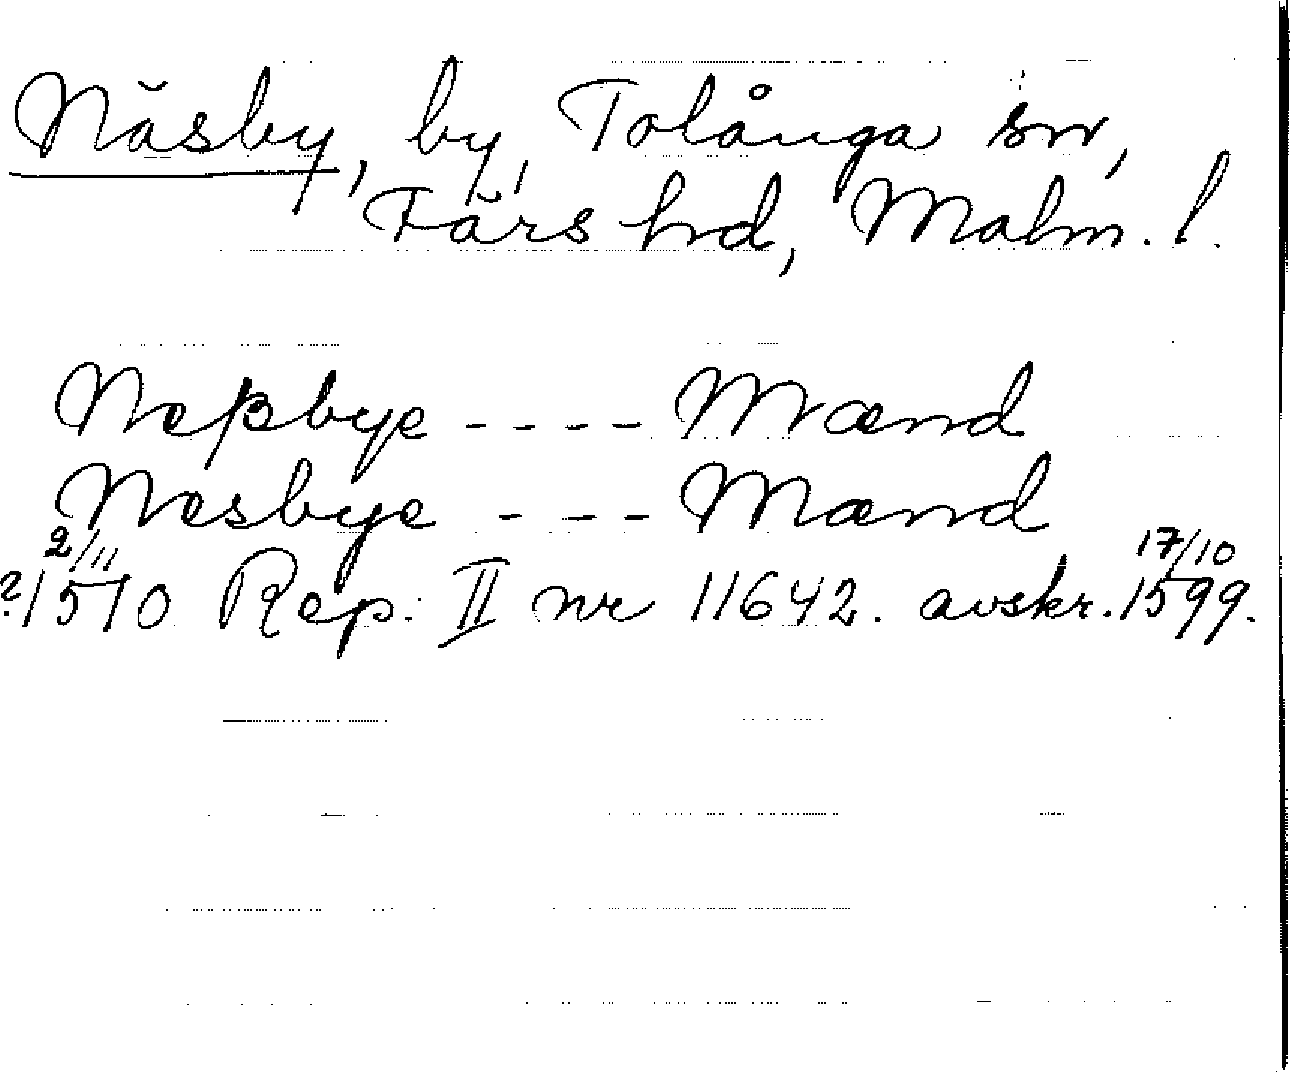 Näsby, by, Tolånga sn,
Färs hrd, Malm. l.
Neßbye ---- Mænd
Nesbye --- Mænd
2/11 17/10
?1510 Rep. II nr 11642. avskr. 1599.